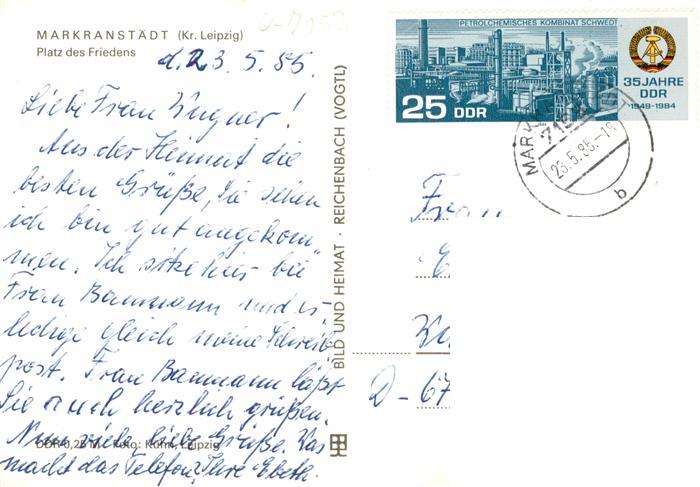 MARKRANSTÄDT (Kr. Leipzig)
Platz des Friedens
d. 23.5.85.
Liebe Frau Wagner!
Aus der Heimat die
besten Grüße, Sie sehen
ich bin gut angekom-
men. Ich sitze hier bei
Frau Baumann und er-
ledige gleich meine Schreib
post. Frau Baumann läßt
Sie auch herzlich grüßen.
Nun viele liebe Grüße. Was
macht das Telefon? Ihre
DDR 0,25 M Foto: Kühn, Leipzig
BILD UND HEIMAT · REICHENBACH (VOGTL)
PETROLCHEMISCHES KOMBINAT SCHWEDT
25 DDR
35 JAHRE
DDR
1949-1984
MARK
715
23.5.85.-18
b
Frau
D-67